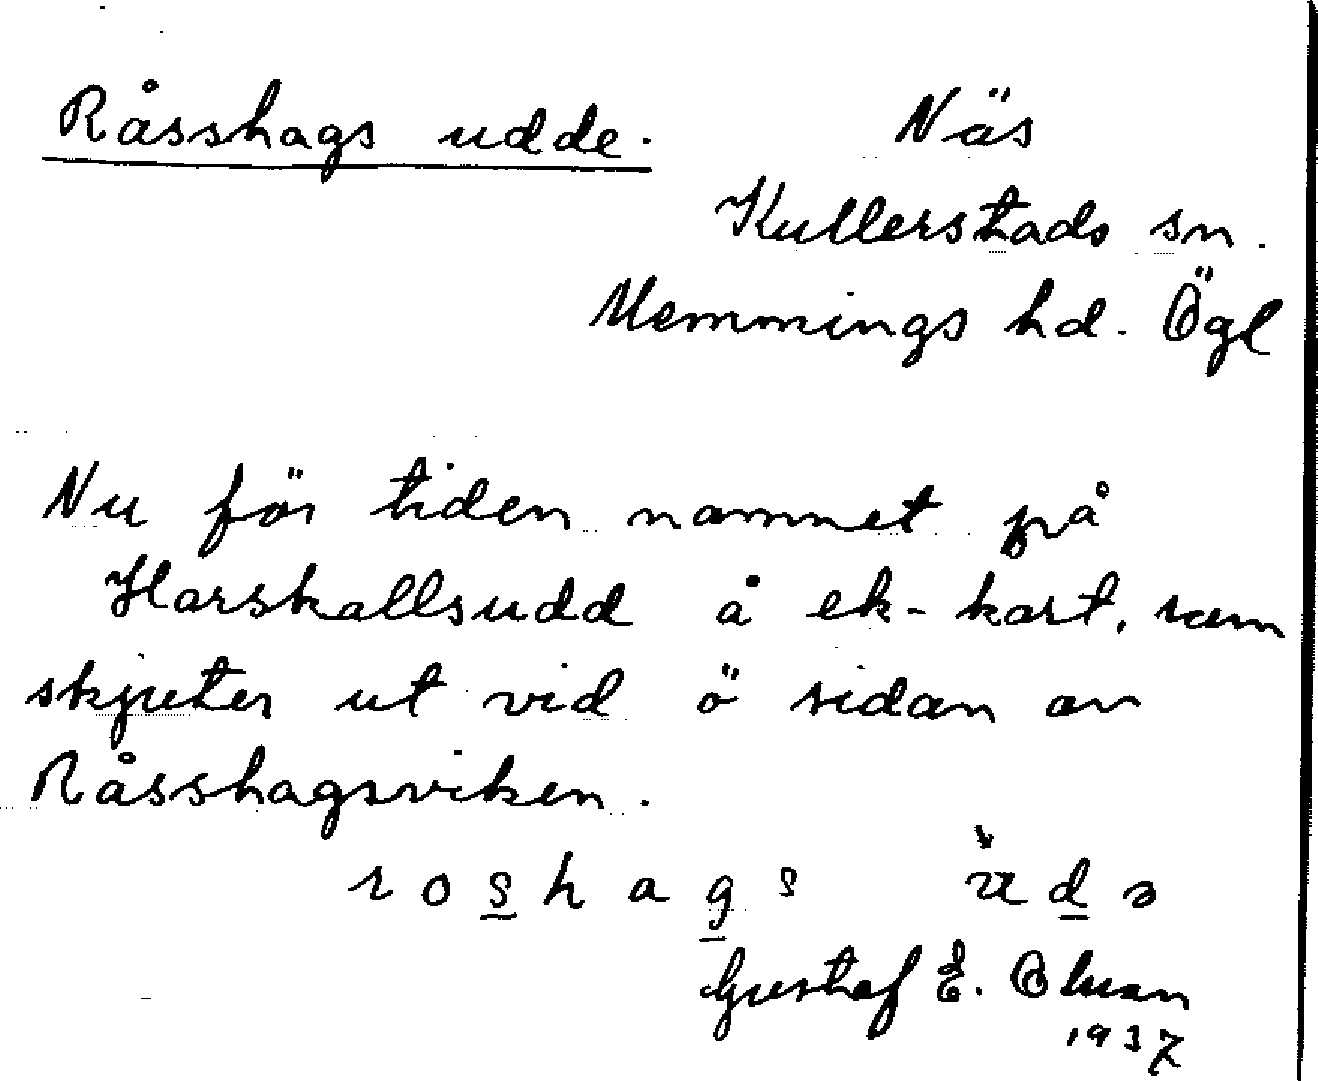 Råsshags udde.
Näs
Kullerstads sn.
Memmings hd. Ögl
Nu för tiden namnet på
Harskallsudd å ek-kart, som
skjuter ut vid ö sidan av
Råsshagsviken.
roshags uda
Gustaf E. Olsson
1937